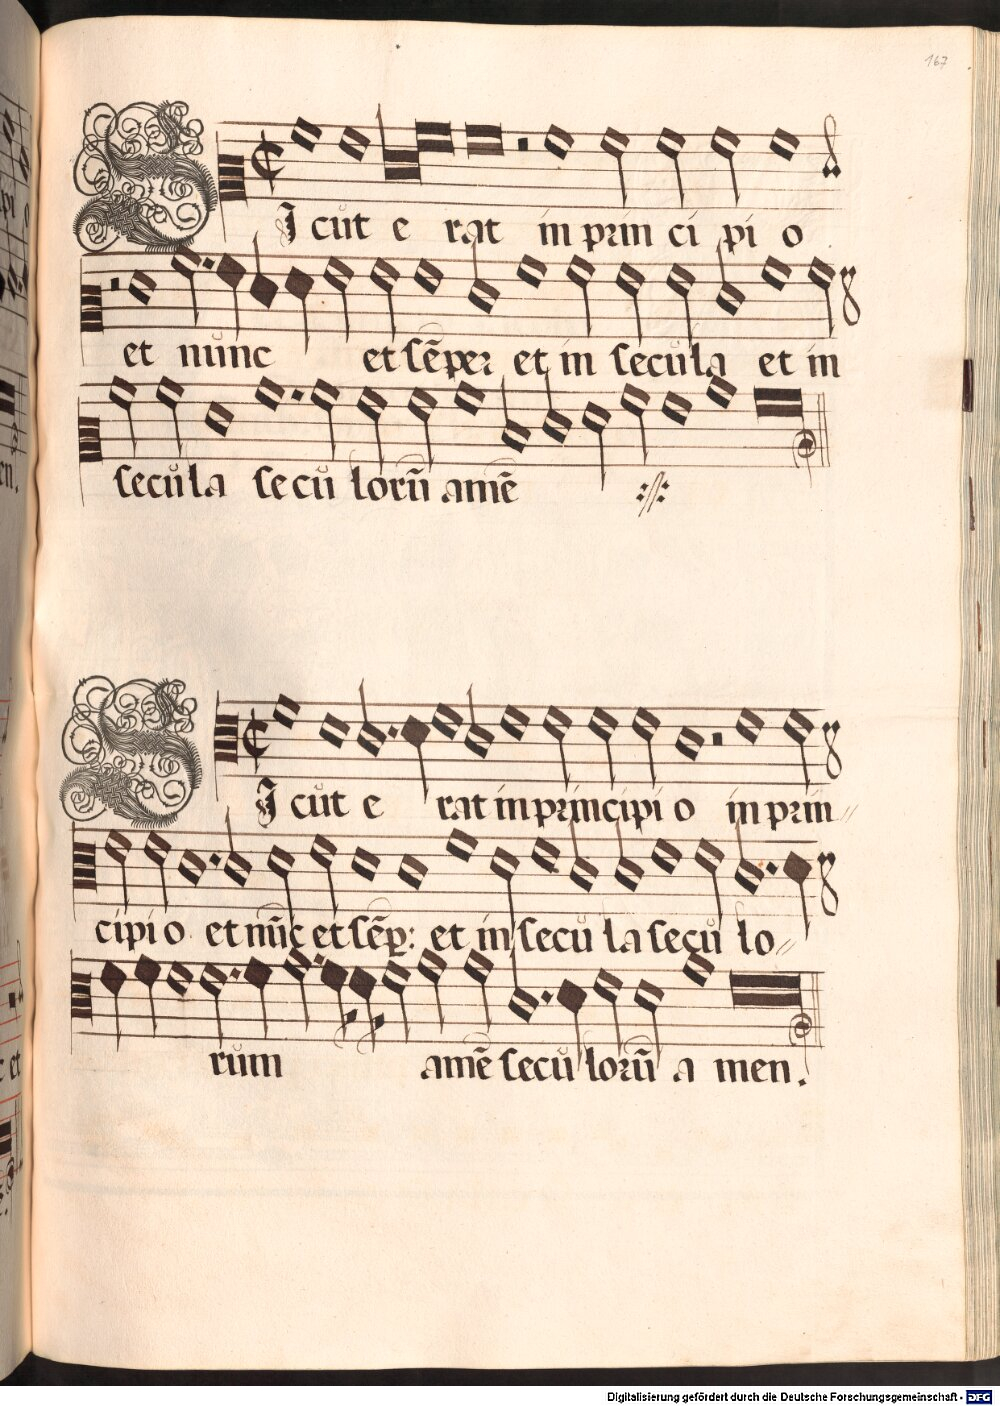 167
SIcut e rat in prin ci pi o
et nunc et sēper et in secula et in
secula secu lorū amē
SIcut e rat in principi o in prin
cipi o et nūc et sēp: et in secu la secu lo
rum amē secu lorū a men.
Digitalisierung gefördert durch die Deutsche Forschungsgemeinschaft - DFG